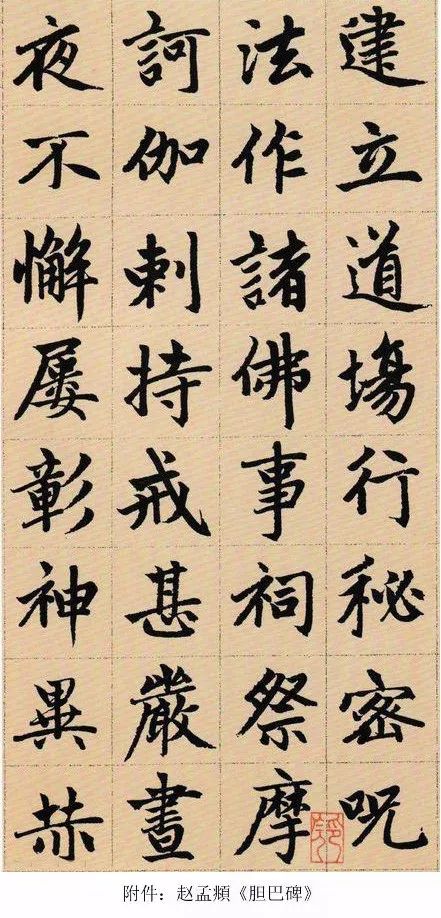 建立道場行秘密呪
法作諸佛事祠祭摩
訶伽剌持戒甚嚴晝
夜不懈屢彰神異赫
附件：赵孟頫《胆巴碑》